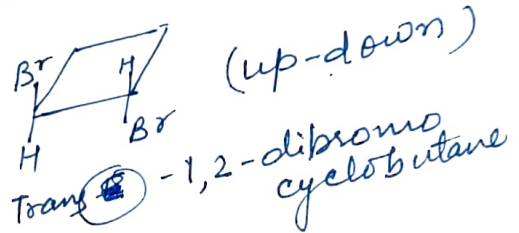 Br H (up-down)
H Br
Trans -1,2-dibromo
cyclobutane